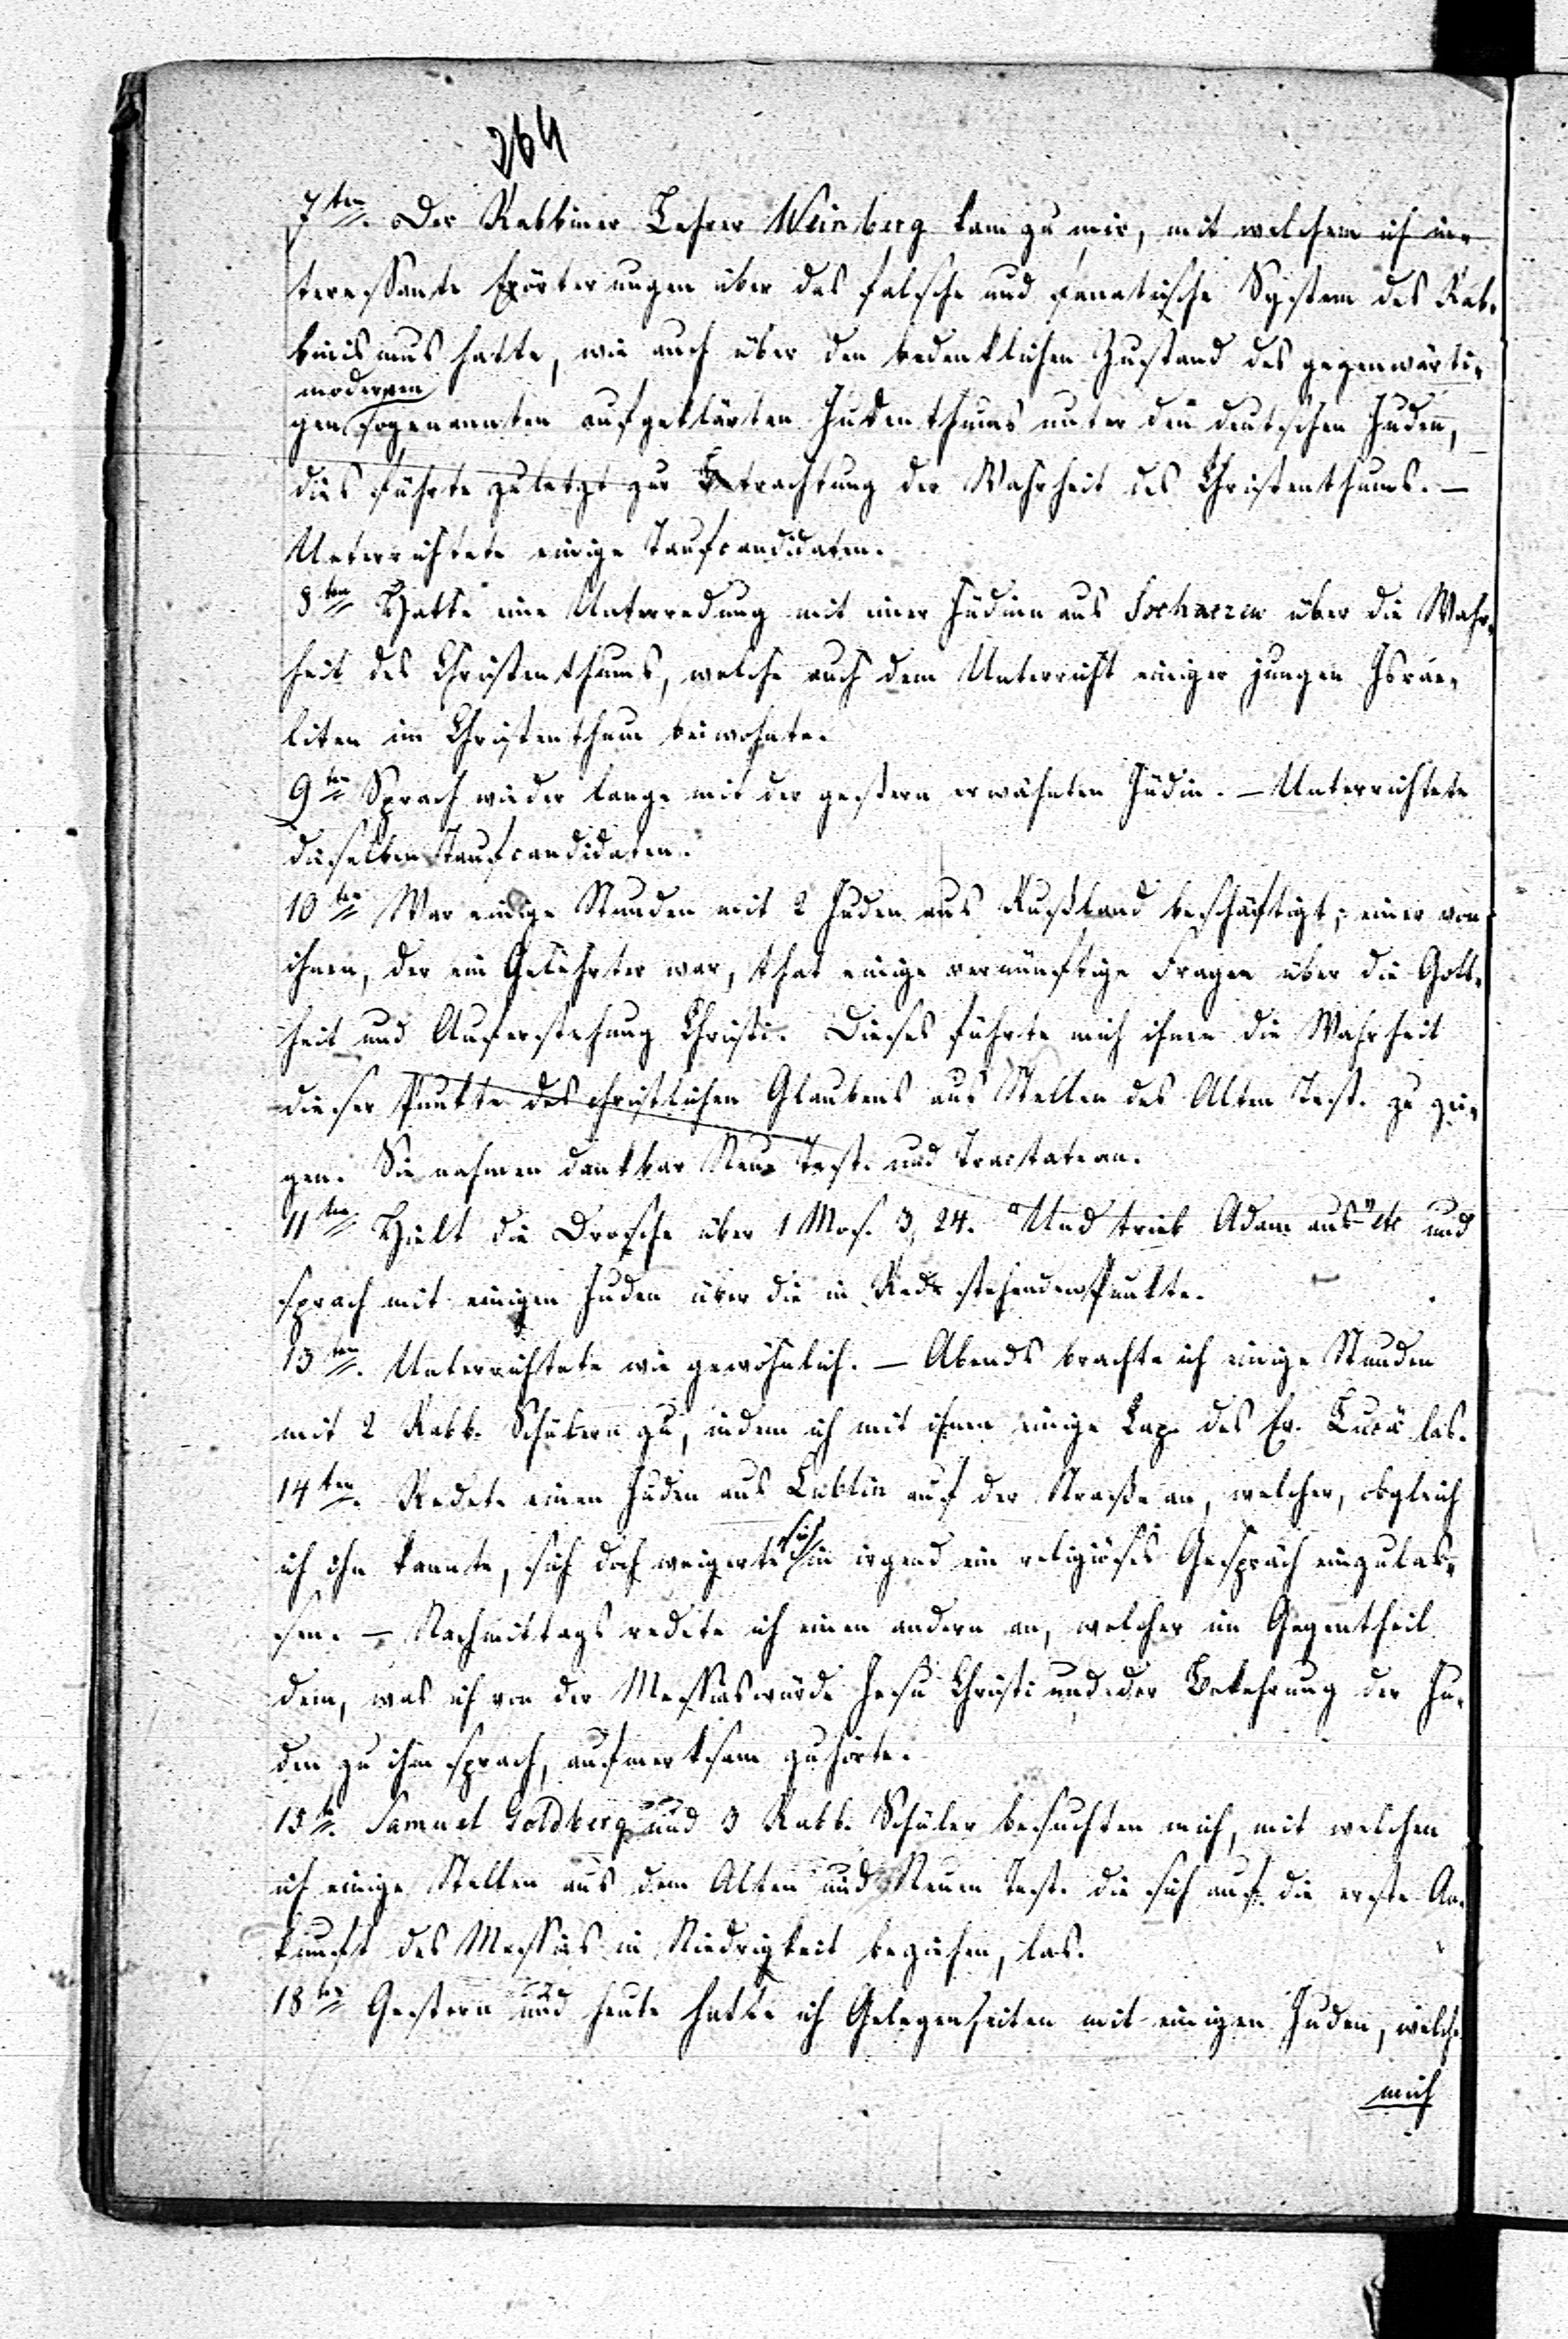 264
7ten. Der Rabbiner Lehrer Weinberg kam zu mir, mit welchem ich in-
teressante Erörterungen über das falsche und fanatische System des Rab-
binismus hatte, wie auch über den bedenklichen Zustand des gegenwärti-
modernen
gen sogenannten aufgeklärten Judenthums unter den deutschen Juden,
dies führte zuletzt zur Betrachtung der Wahrheit des Christenthums. –
Unterrichtete einige Taufcandidaten.
8ten Hatte eine Unterredung mit einer Jüdinn aus Sochaczew über die Wahr-
heit des Christenthums, welche auch dem Unterricht einiger jungen Israe-
liten im Christenthum beiwohnte.
9ten Sprach wieder lange mit der gestern erwähnten Jüdin. – Unterrichtete
dieselben Taufcandidaten.
10ten War einige Stunden mit 2 Juden aus Rußland beschäftigt; einer von
ihnen, der ein Gelehrter war, that einige vernünftige Fragen über die Gott-
heit und Auferstehung Christi. Dieses führte mich ihnen die Wahrheit
dieser Punkte des christlichen Glaubens aus Stellen des Alten Test. zu zei-
gen. Sie nahmen dankbar Neue Test. und Tractate an.
11ten Hielt die Drosche über 1 Mos. 3, 24. "Und trieb Adam aus" etc und
sprach mit einigen Juden über die in Rede stehenden Punkte.
13ten. Unterrichtete wie gewöhnlich. – Abends brachte ich einige Stunden
mit 2 Rabb. Schülern zu, indem ich mit ihnen einige Cap. des Ev. Lucä las.
14ten. Redete einen Juden aus Lublin auf der Straße an, welcher, obgleich
ich ihn kannte, sich doch weigerte sich in irgend ein religiöses Gespräch einzulas-
sen. – Nachmittags redete ich einen andern an, welcher im Gegentheil
dem, was ich von der Messiaswürde Jesu Christi und der Bekehrung der Ju-
den zu ihm sprach, aufmerksam zuhörte.
15t. Samuel Goldberg und 3 Rabb. Schüler besuchten mich, mit welchen
ich einige Stellen aus dem Alten und Neuen Test. die sich auf die erste An-
kunft des Messias in Niedrigkeit beziehen, las.
18ten Gestern und heute hatte ich Gelegenheiten mit einigen Juden, welche
mich